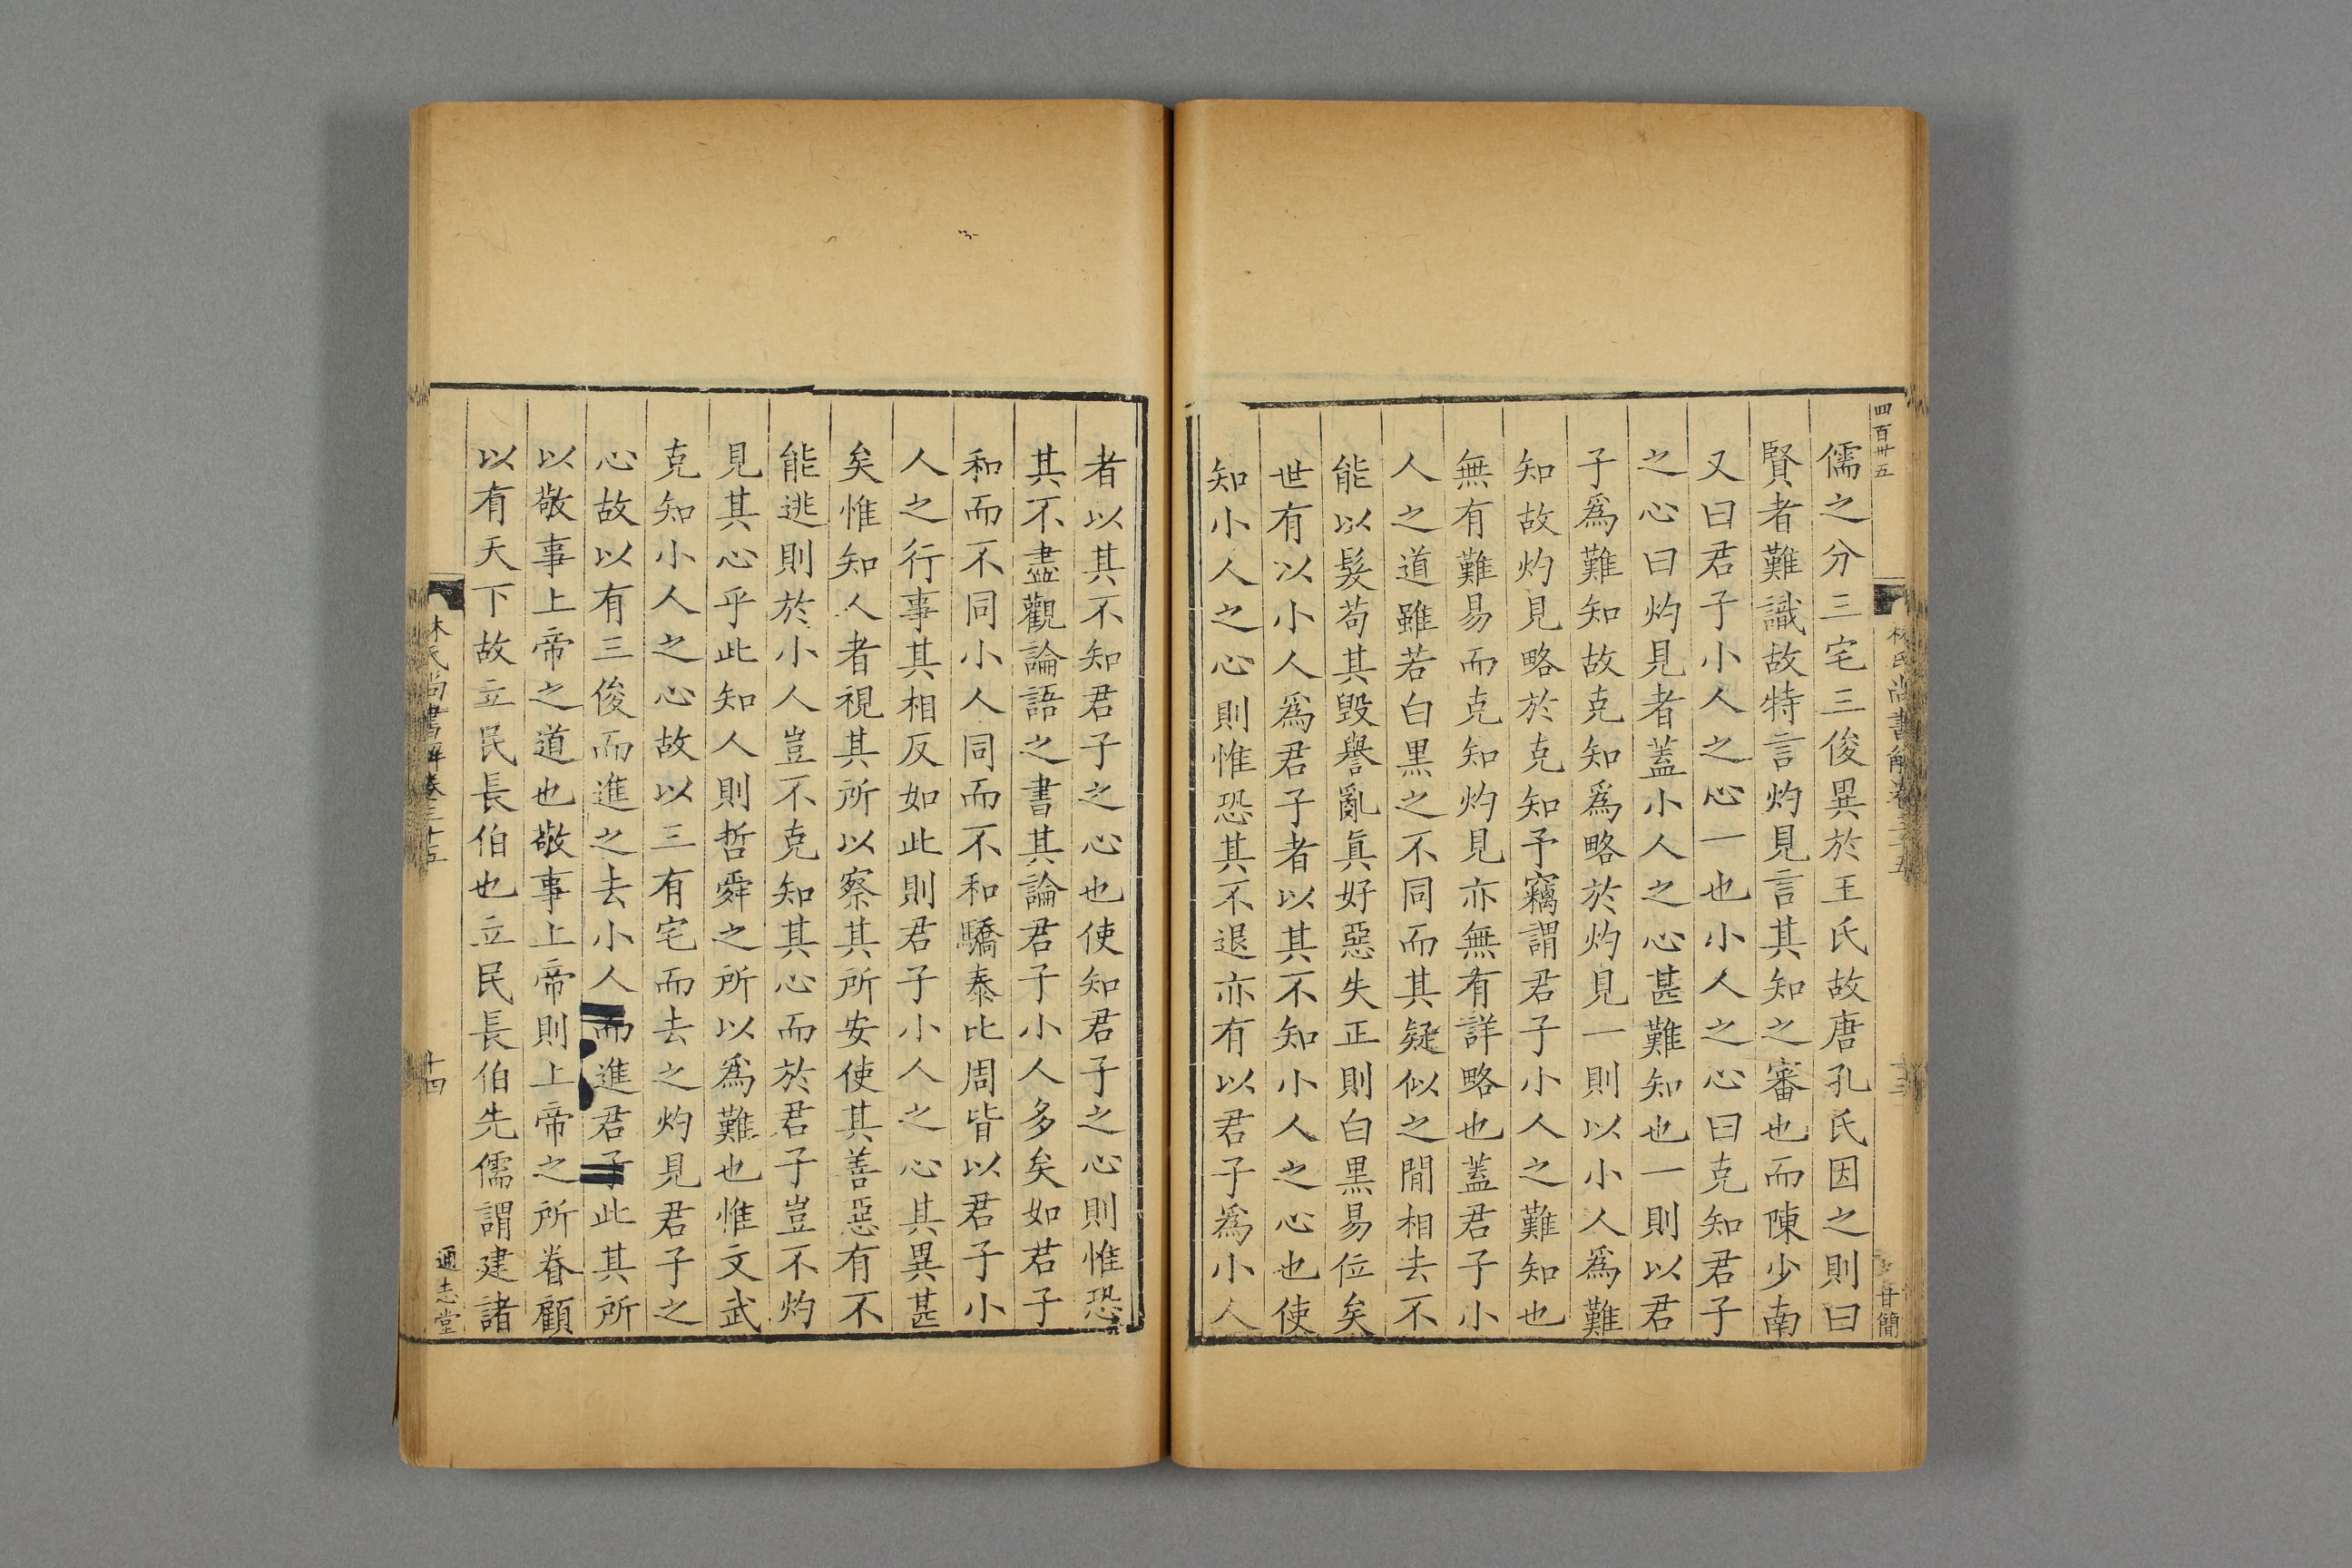 四百卅五
林氏尚書解卷三十五
十三
甘簡
儒之分三宅三俊異於王氏故唐孔氏因之則曰
賢者難識故特言灼見言其知之審也而陳少南
又曰君子小人之心一也小人之心曰克知君子
之心曰灼見者蓋小人之心甚難知也一則以君
子爲難知故克知爲略於灼見一則以小人爲難
知故灼見略於克知予竊謂君子小人之難知也
無有難易而克知灼見亦無有詳略也蓋君子小
人之道雖若白黑之不同而其疑似之間相去不
能以髮苟其毀譽亂眞好惡失正則白黑易位矣
世有以小人爲君子者以其不知小人之心也使
知小人之心則惟恐其不退亦有以君子爲小人
者以其不知君子之心也使知君子之心則惟恐
其不盡觀論語之書其論君子小人多矣如君子
和而不同小人同而不和驕泰比周皆以君子小
人之行事其相反如此則君子小人之心其異甚
矣惟知人者視其所以察其所安使其善惡有不
能逃則於小人豈不克知其心而於君子豈不灼
見其心乎此知人則哲舜之所以爲難也惟文武
克知小人之心故以三有宅而去之灼見君子之
心故以有三俊而進之去小人而進君子此其所
以敬事上帝之道也敬事上帝則上帝之所眷顧
以有天下故立民長伯也立民長伯先儒謂建諸
林氏尚書解卷三十五
十四
通志堂